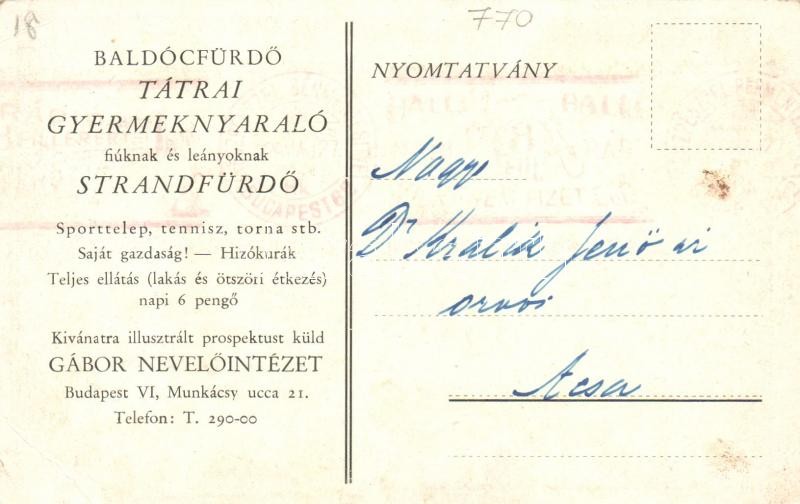 18
770
BALDÓCFÜRDŐ
TÁTRAI
GYERMEKNYARALÓ
fiúknak és leányoknak
STRANDFÜRDŐ
Sporttelep, tennisz, torna stb.
Saját gazdaság! — Hizókurák
Teljes ellátás (lakás és ötszöri étkezés)
napi 6 pengő
Kivánatra illusztrált prospektust küld
GÁBOR NEVELŐINTÉZET
Budapest VI, Munkácsy ucca 21.
Telefon: T. 290-00
NYOMTATVÁNY
Nagys
Dr Kralik Jenő úr
orvos
Acsa